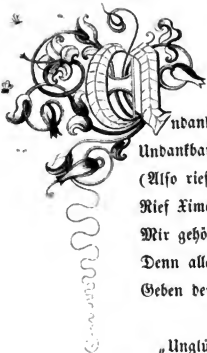 Undank
Undankbar
(Alſo rief
Rief Xime
Mir gehö
Denn all
Geben de
„Unglü